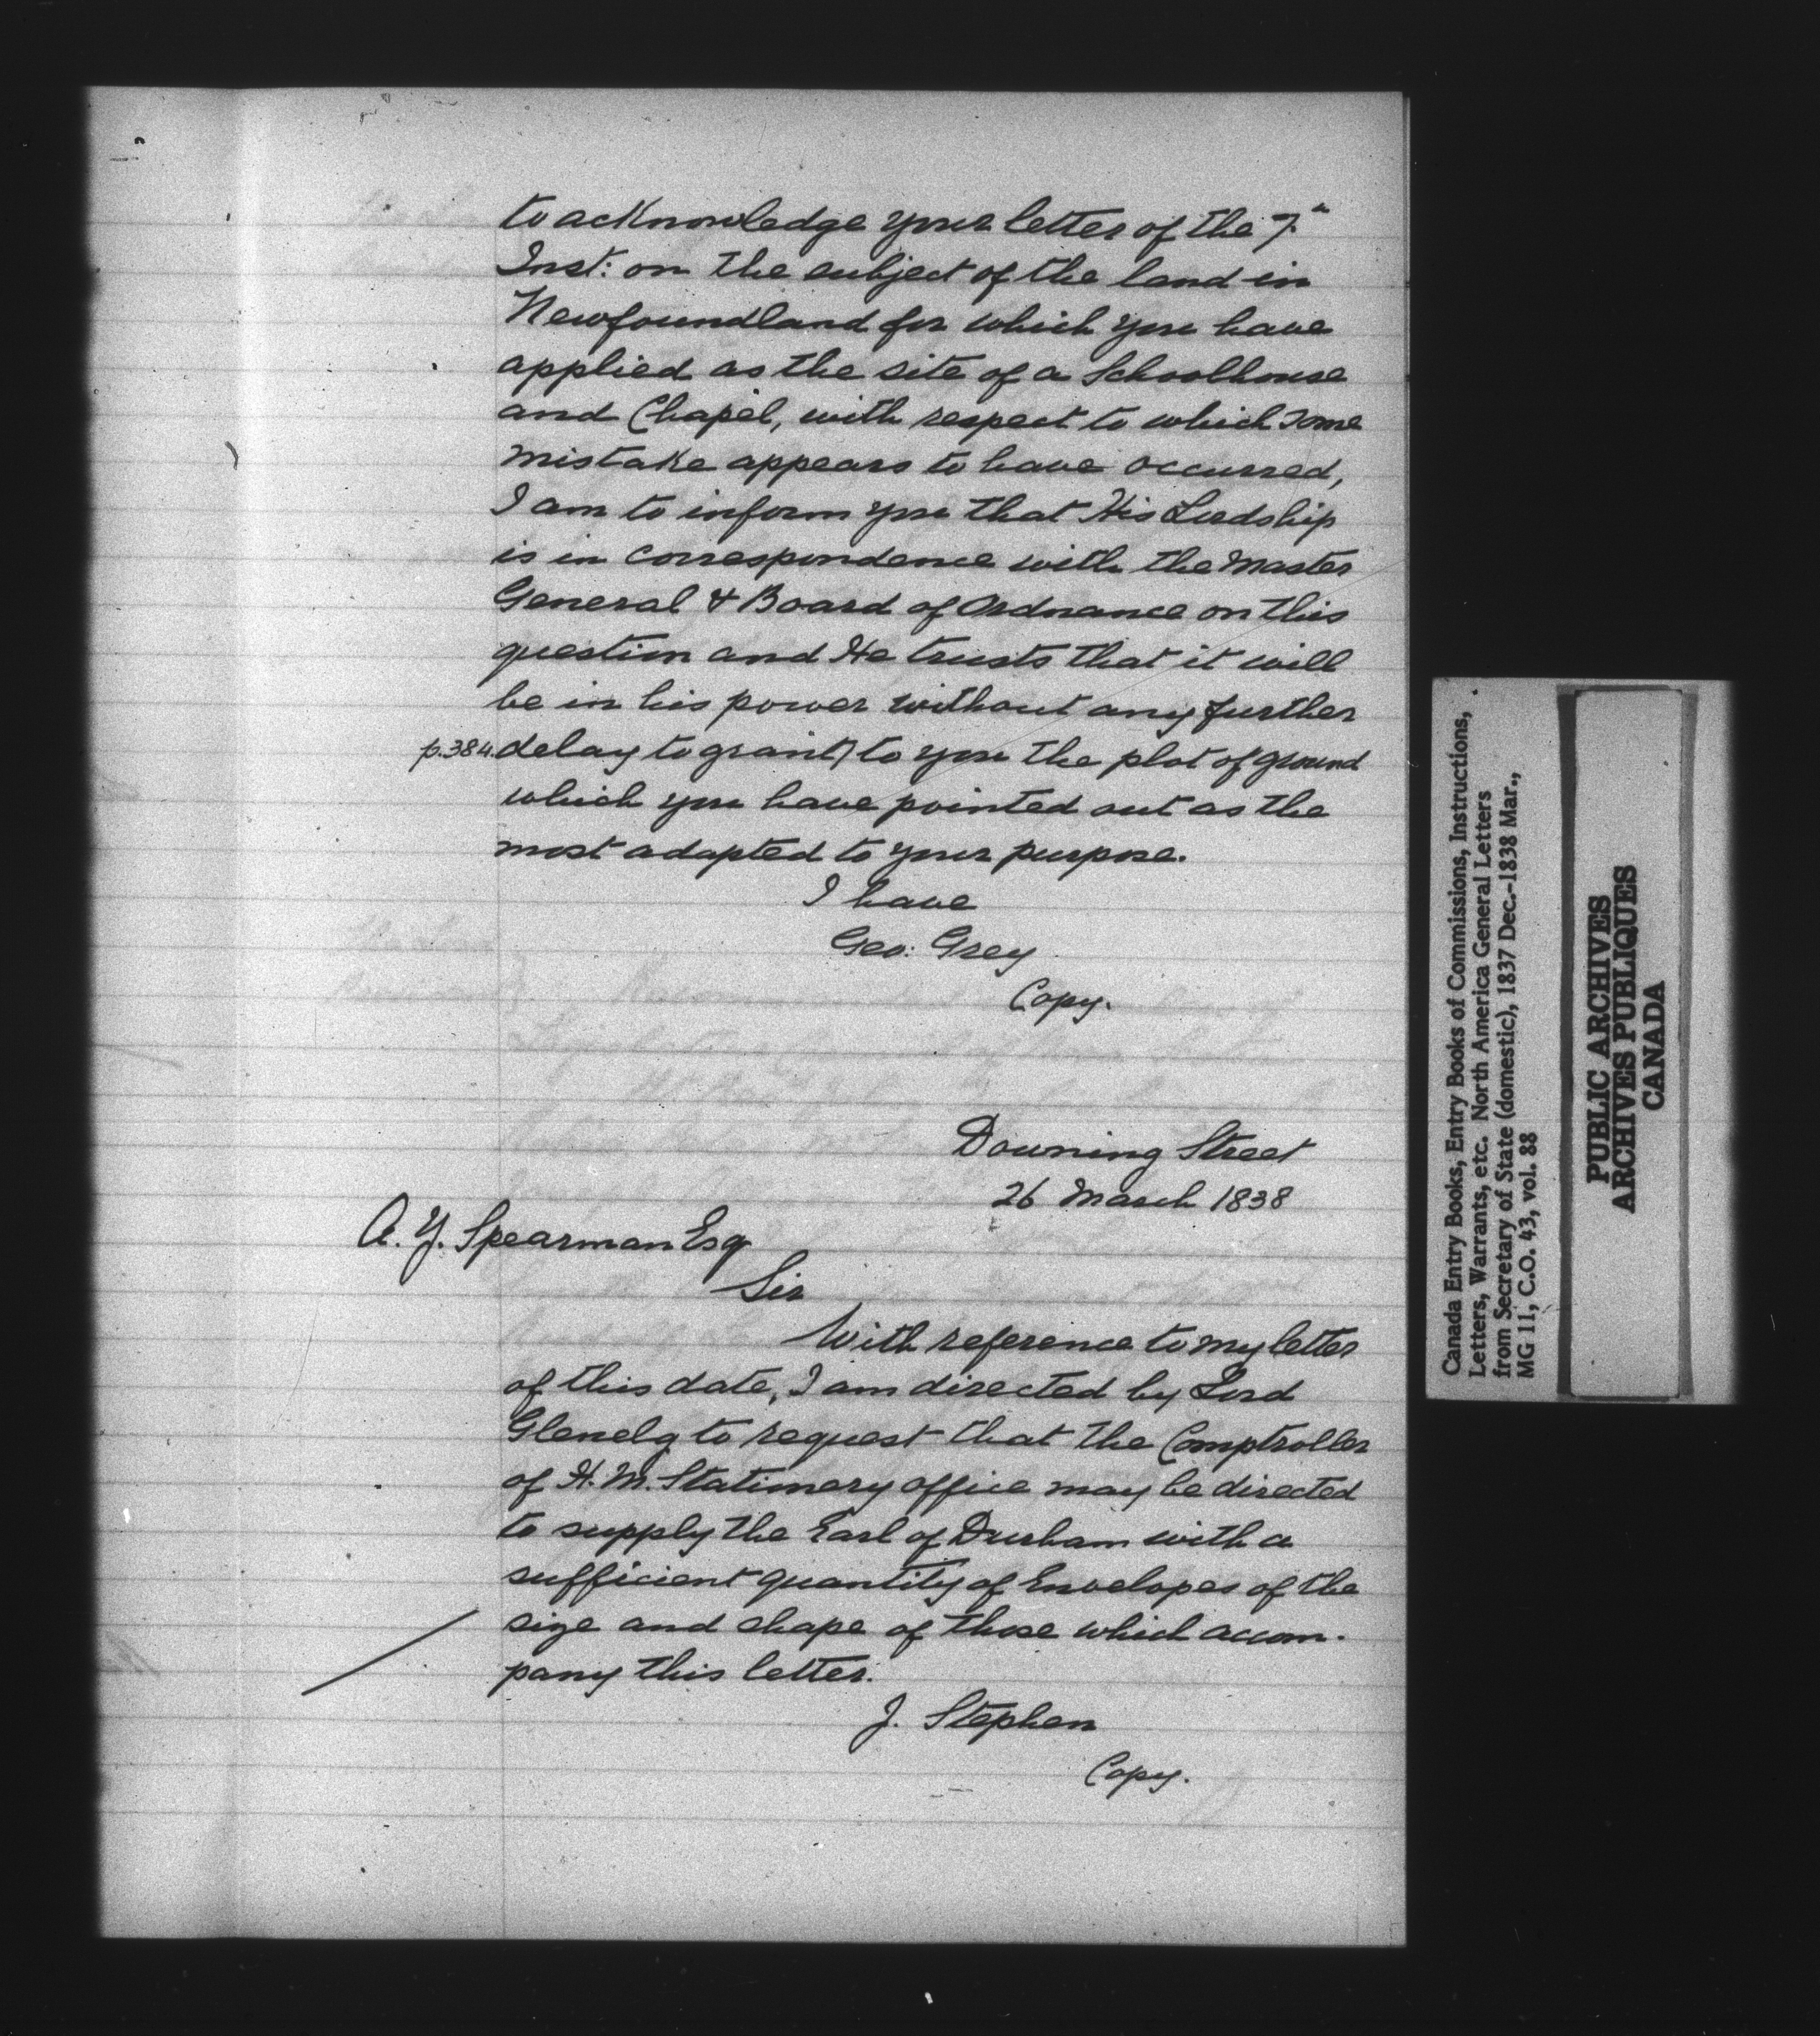 to acknowledge your letter of the 7"
Inst: on the subject of the land in
Newfoundland for which you have
applied as the site of a Schoolhouse
and Chapel, with respect to which some
mistake appears to have occurred,
I am to inform you that His Lordship
is in correspondence with the Master
General & Board of Ordnance on this
question and He trusts that it will
be in his power without any further
p.384. delay to grant) to you the plot of ground
which you have pointed out as the
most adapted to your purpose.
I have
Geo: Grey
Copy.
Downing Street
26 March 1838
A. Y. Spearman Esq
Sir
With reference to my letter
of this date, I am directed by Lord
Glenelg to request that the Comptroller
of H. M. Stationery office may be directed
to supply the Earl of Durham with a
sufficient quantity of Envelopes of the
size and shape of those which accom-
pany this letter.
J. Stephen
Copy.
Canada Entry Books, Entry Books of Commissions, Instructions,
Letters, Warrants, etc. North America General Letters
from Secretary of State (domestic), 1837 Dec.-1838 Mar.,
MG 11, C.O. 43, vol. 88
PUBLIC ARCHIVES
ARCHIVES PUBLIQUES
CANADA